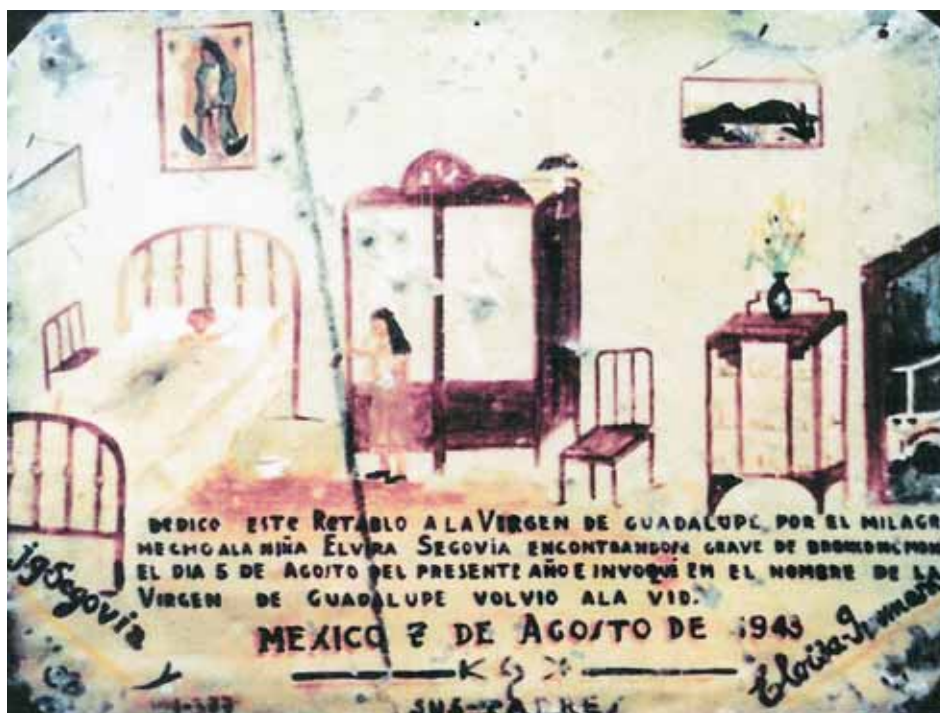 DEDICO ESTE RETABLO A LA VIRGEN DE GUADALUPE POR EL MILAGR
HECHO ALA NIÑA ELVIRA SEGOVIA ENCONTRANDOSE GRAVE DE
EL DIA 5 DE AGOSTO DEL PRESENTE AÑO E INVOQUÉ EN EL NOMBRE DE LA
VIRGEN DE GUADALUPE VOLVIO ALA VID.
MEXICO 7 DE AGOSTO DE 1943
j g Segovia
SUS PADRES